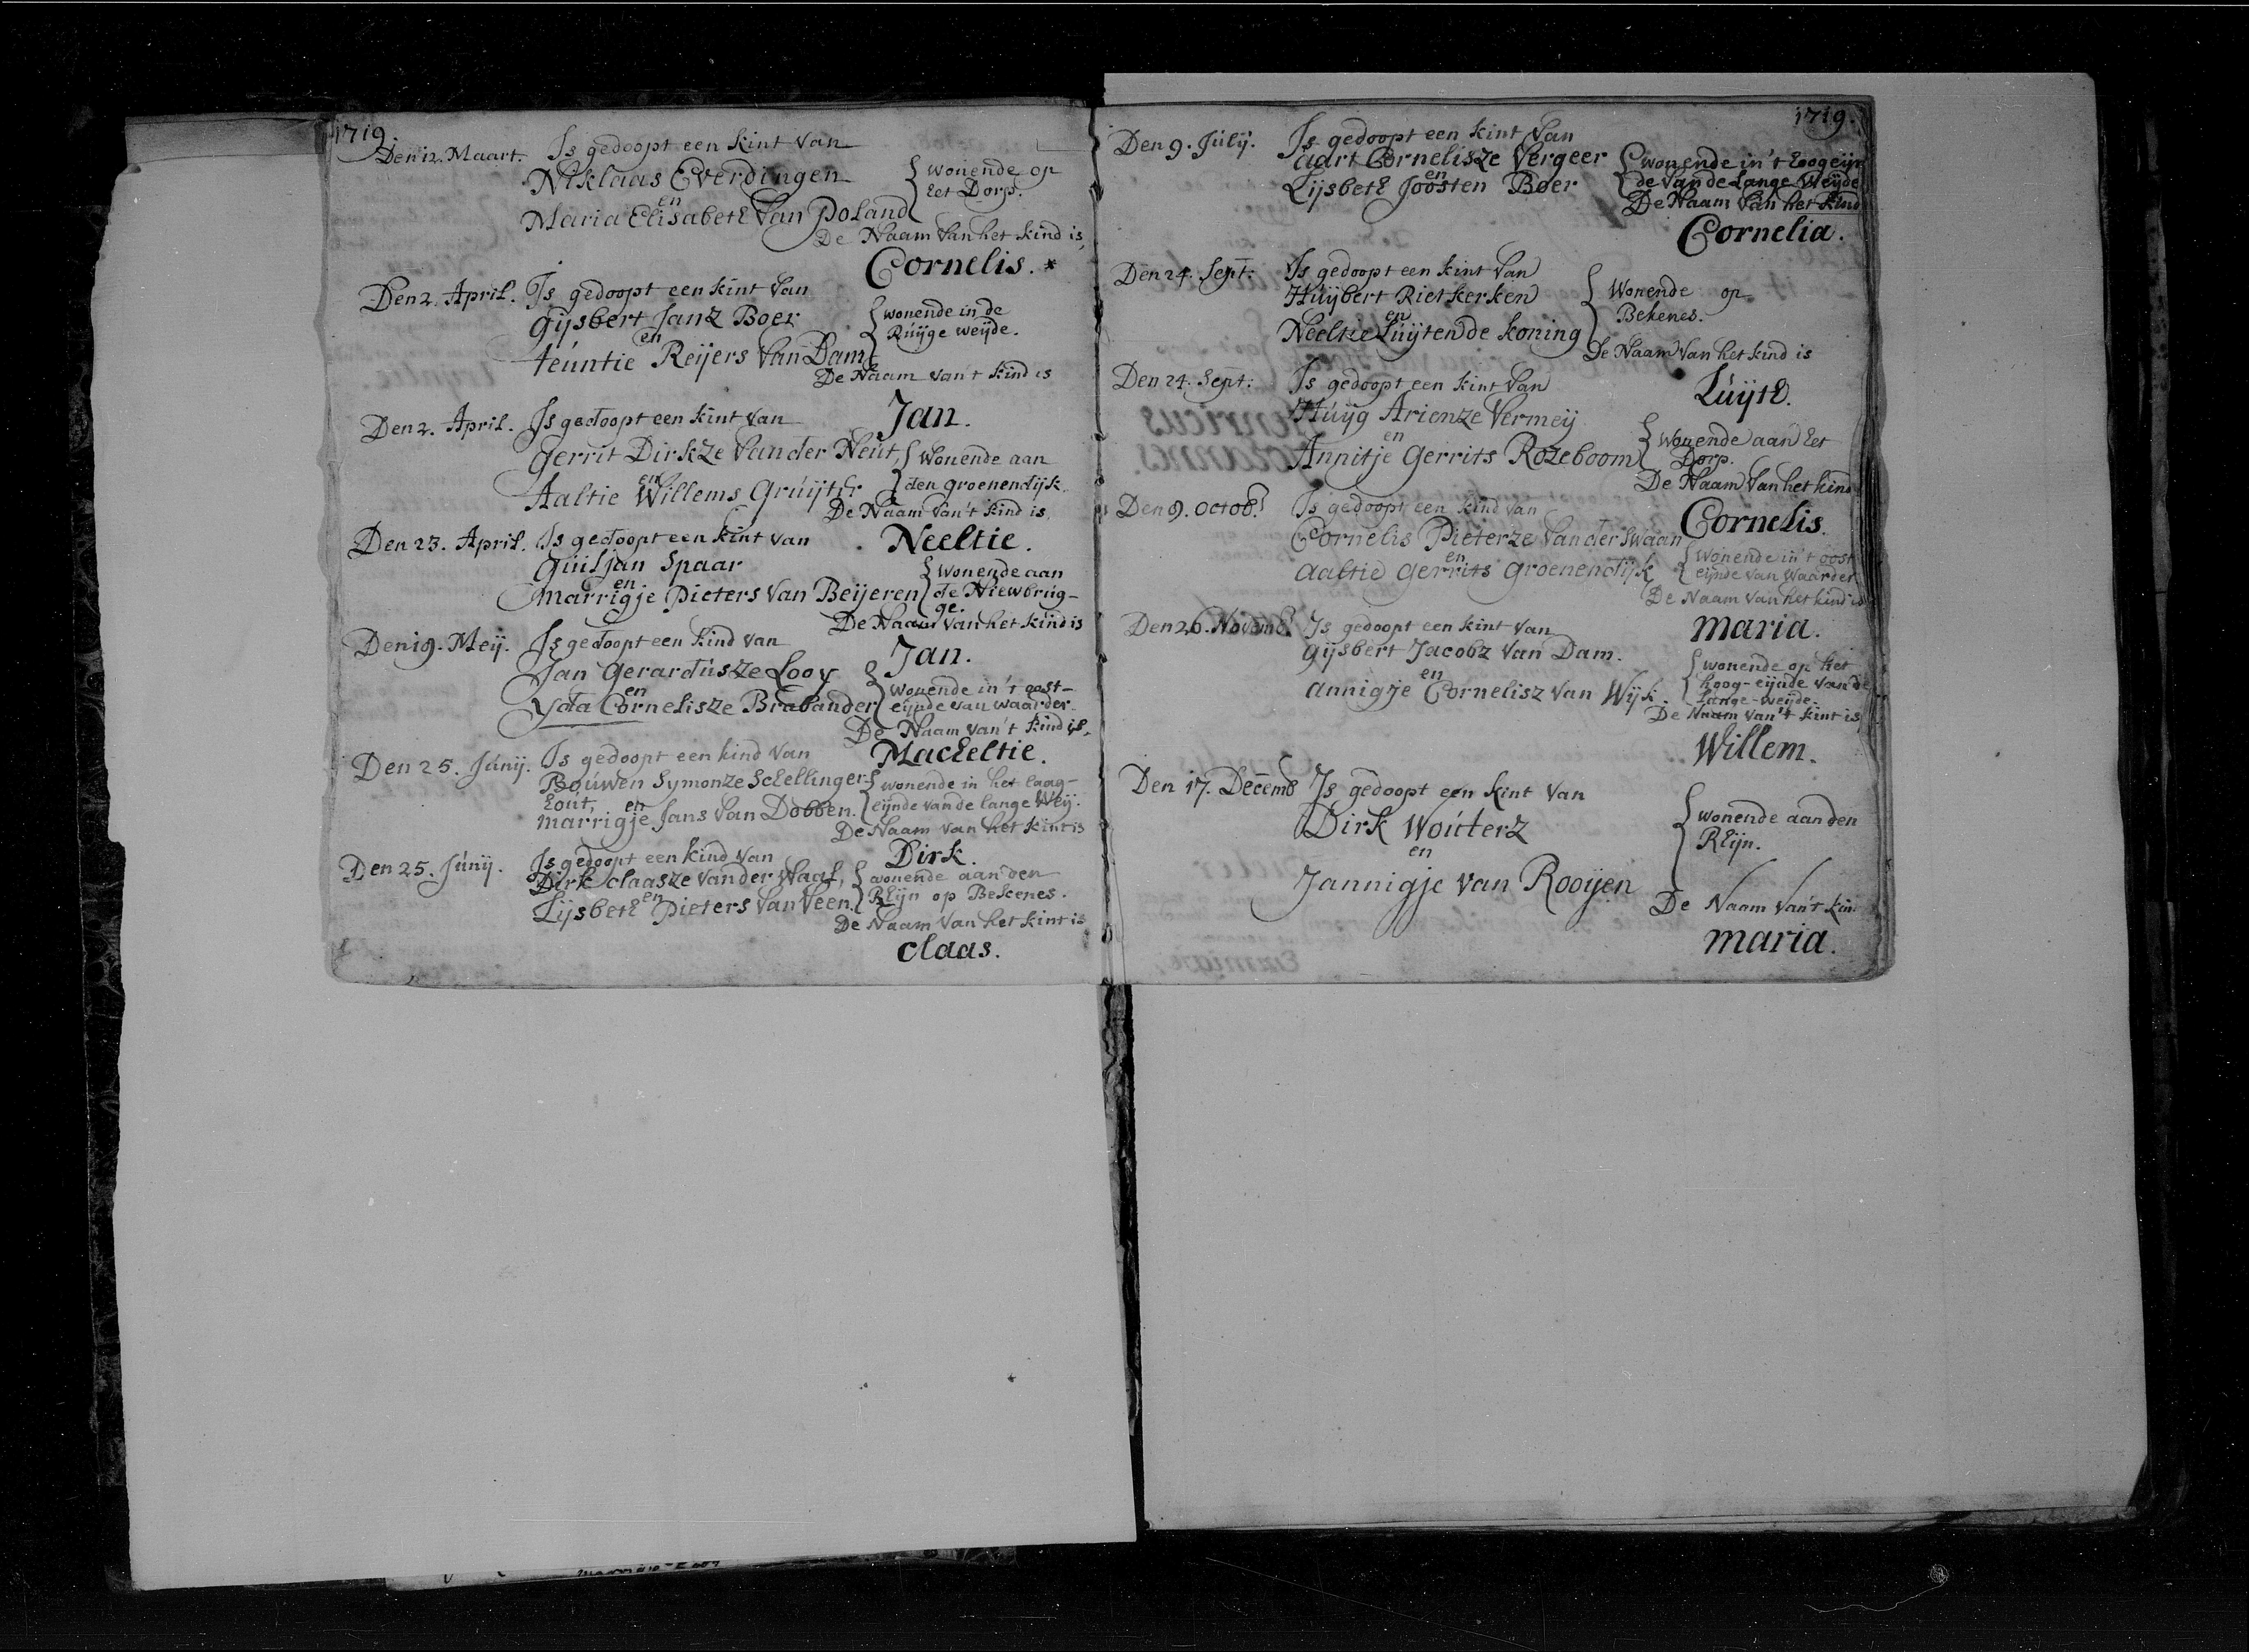 1719.
Den 12. Maart. Is gedoopt een kint van
Niklaas Everdingen { wonende op
en het Dorp.
Maria Elisabeth Van Poland
De Naam van het kind is,
Cornelis. *
Den 2. April. Is gedoopt een kint van
Gijsbert Janz Boer { wonende in de
en Ruijge weijde.
teuntie Reijers Van Dam
De Naam van't kind is
Jan.
Den 2. April. Is gedoopt een kint van
Gerrit Dirkze Vander Neut, { wonende aan
en den groenendijk.
Aaltie Willems Gruijter
De Naam van't kind is,
Neeltie.
Den 23. April. Is gedoopt een kint van
Guiljan Spaar { wonende aan
en de Niewbrug-
marrigje Pieters Van Beijeren ge.
De Naam van het kind is
Jan.
Den 19. Meij. Is gedoopt een kind van
Jan Gerardusze Looy
en { wonende in't oost-
Yda Cornelisze Brabander eijnde van waarder.
De Naam van't kind is,
Macheltie.
Den 25. Junij. Is gedoopt een kind van
Bouwen Symonze Schellinger- { wonende in het laag-
hout, en eijnde van de lange Weij.
marrigje Jans Van Dobben.
De Naam van het kint is
Dirk.
Den 25. Junij. Is gedoopt een kind van
Dirk Claasze Vander Waal, { wonende aan den
en Rhijn op Bekenes.
Lijsbeth Pieters Van Veen.
De Naam van het kint is
Claas.
1719.
Den 9. Julij. Is gedoopt een kint van
aart Cornelisze Vergeer { wonende in't hoogeijn
en de van de Lange Weijde
Lijsbeth Joosten Boer
De Naam van het kind
Cornelia.
Den 24. Sept: Is gedoopt een kint van
Huijbert Rietkerken { Wonende op
en Bekenes.
Neeltie Luijten de koning
De Naam van het kind is
Luijth.
Den 24. Sept: Is gedoopt een kint van
Huijg Arienze Vermeij
en { wonende aan het
Annitje Gerrits Rozeboom Dorp.
De Naam van het kind
Cornelis.
Den 9. Octob. Is gedoopt een kind van
Cornelis Pieterze Vander Swaan
en { wonende in't oost
aaltie Gerrits Groenendijk eijnde van Waarder
De Naam van het kind is
maria.
Den 26. Novemb. Is gedoopt een kint van
Gijsbert Jacobz Van Dam. { wonende op het
en hoog-eijnde van de
annigje Cornelisz van Wijk. Lange-weijde.
De Naam van't kint is
Willem.
Den 17. Decemb Is gedoopt een kint van
Dirk Wouterz { wonende aan den
en Rhijn.
Jannigje van Rooijen
De Naam van't kin
maria.